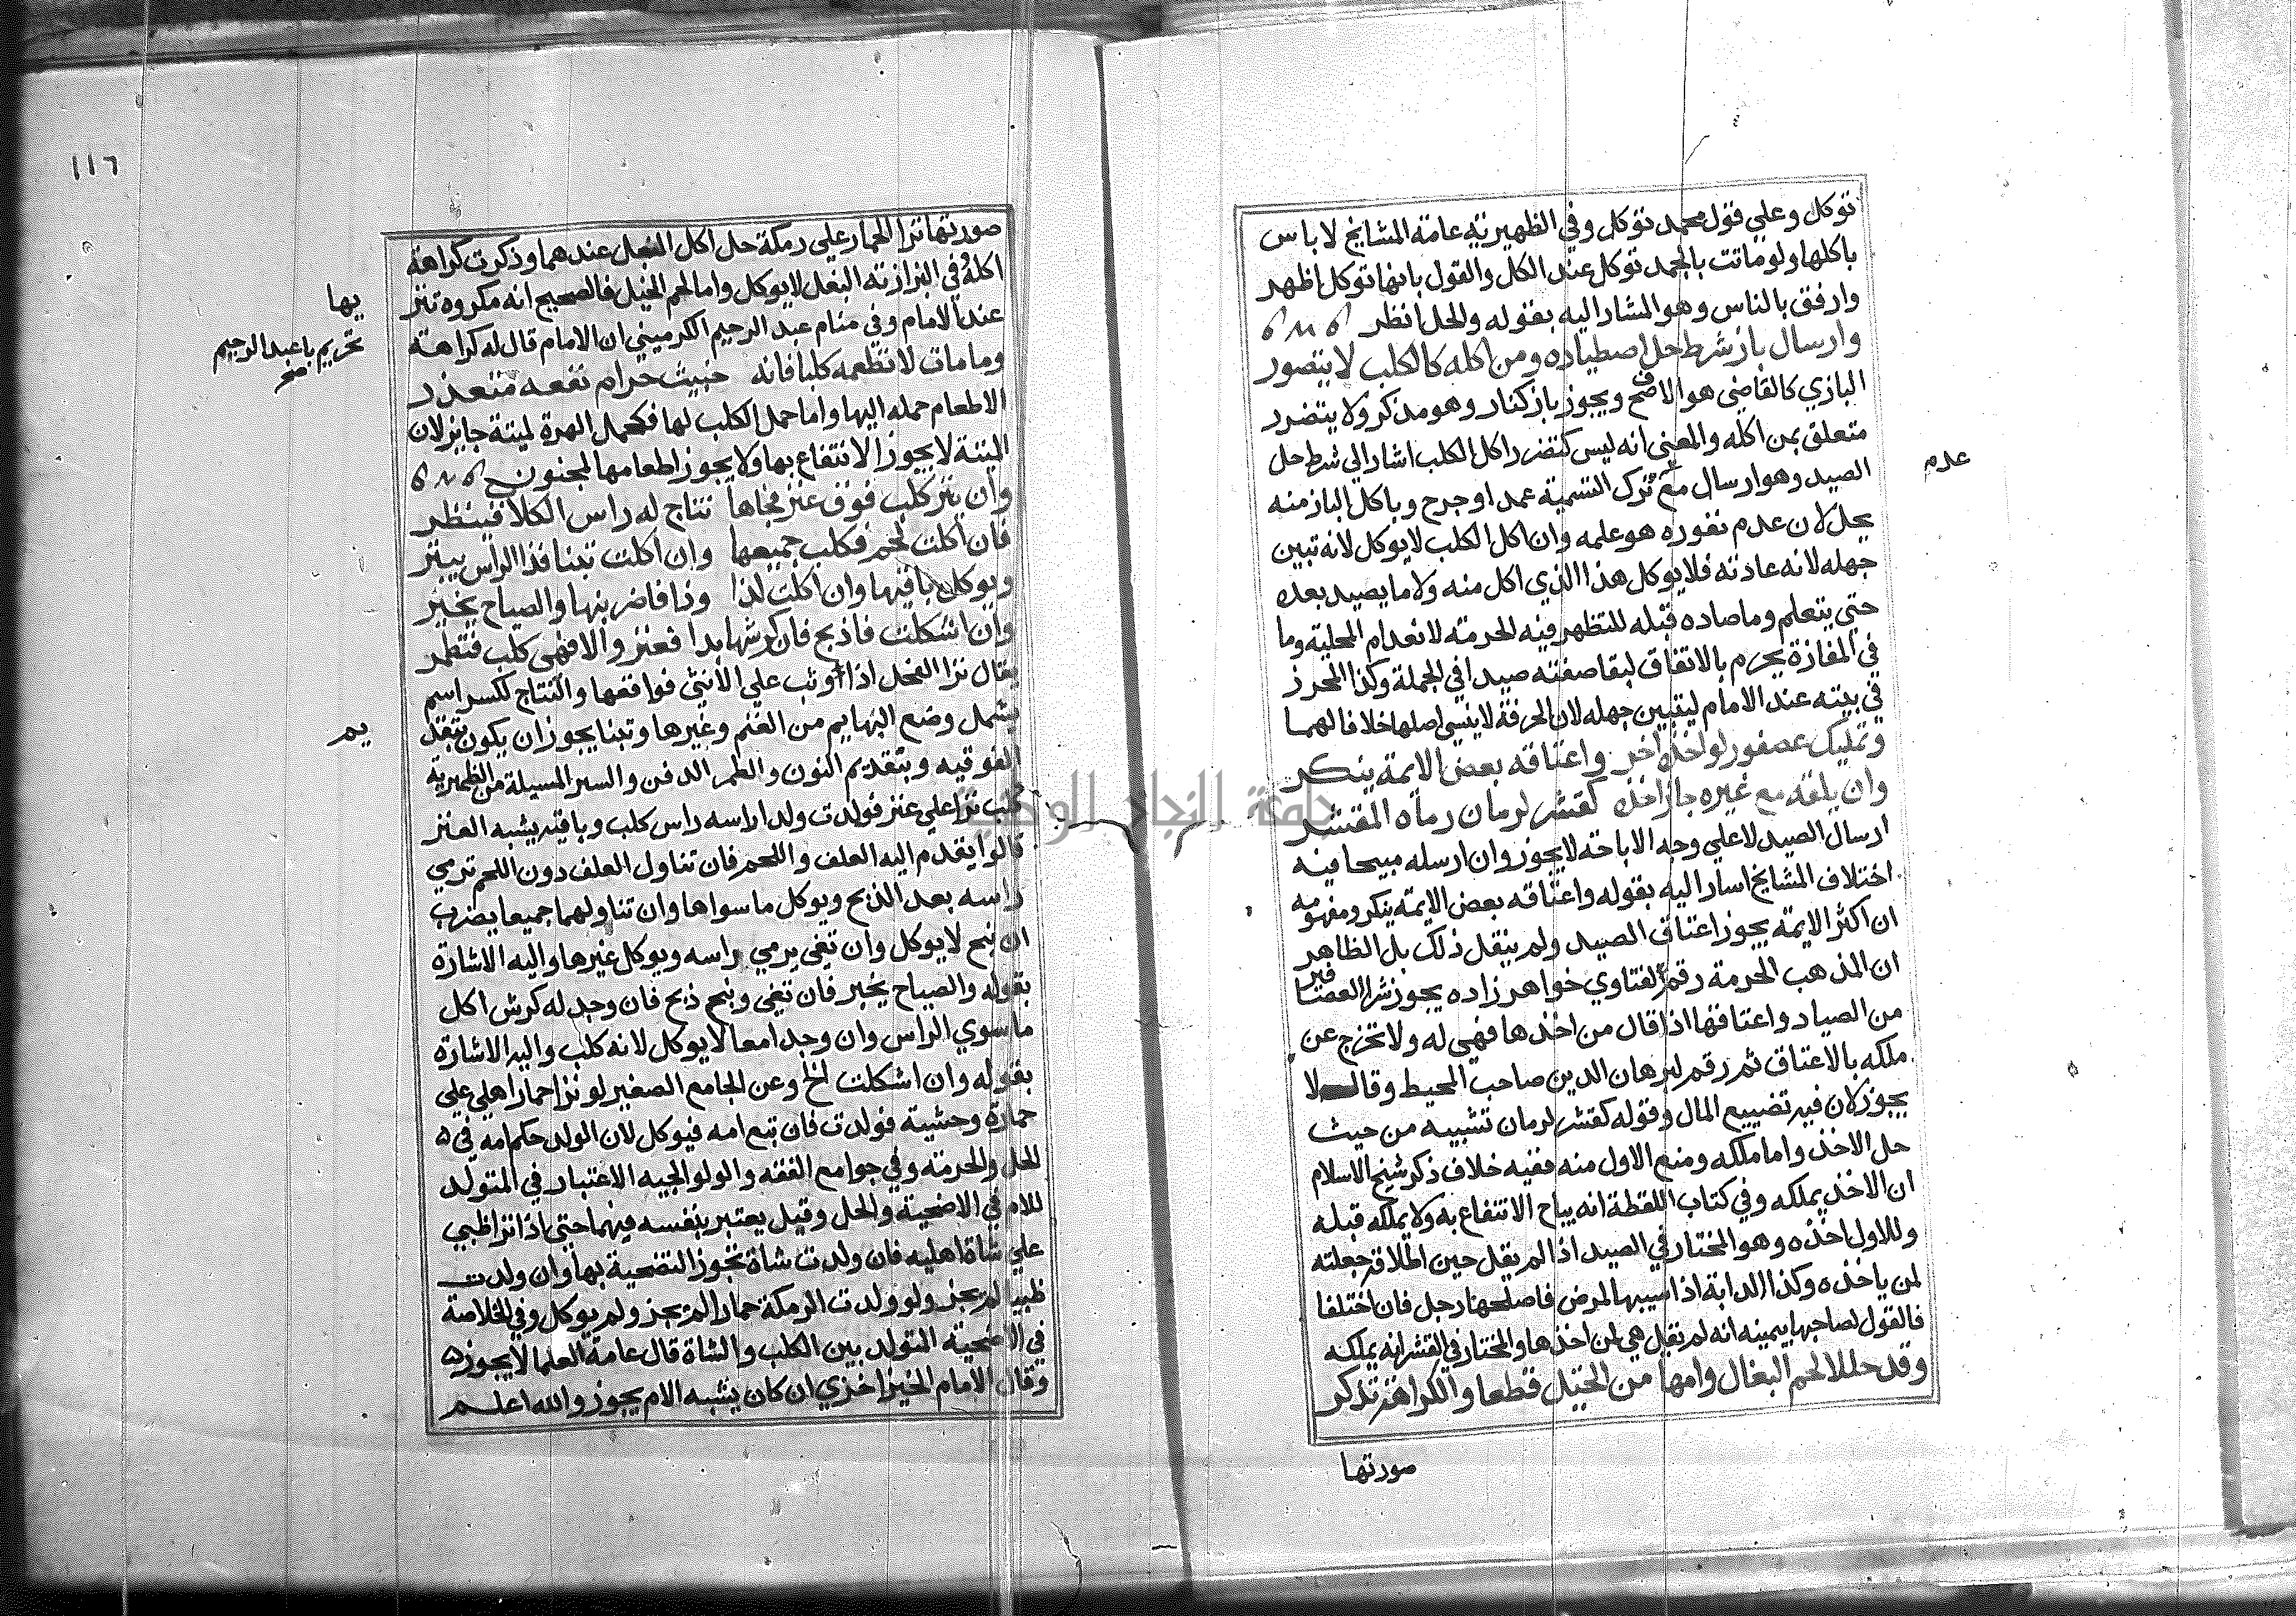 توكل وعلي قول محمد توكل وفي الظهيرية عامة المشايخ لا باس
باكلها ولو ماتت بالجمد توكل عند الكل والقول بانها توكل اظهر
وارفق بالناس وهو المشار اليه بقوله والحل انظر
وارسال باز شرط حل اصطياده ومن اكله كالكلب لا يتصور
البازي كالقاضي هو الاصح ويجوز باز كنار وهو مذكر ولا يتضرر
متعلق بمن اكله والمعني انه ليس كتضرر اكل الكلب اشار الي شرط حل
الصيد وهو ارسال مع ترك التسمية عمدا وجرح وباكل الباز منه
عدم
يحل لان عدم نفوره هو علمه وان اكل الكلب لا يوكل لانه تبين
جهله لانه عادته فلا يوكل هذا الذي اكل منه ولا ما يصيد بعده
حتي يتعلم وما صاده قبله للتظهر فيه الحرمته لانعدام المحلية وما
في المفازة يحرم بالاتفاق لبقا صفته صيدا في الجملة وكذا المحرز
في بيته عند الامام ليتبين جهله لان الحرفة لا ينسي اصلها خلافا لهما
وتمليك عصفور لواخذه اخر واعتاقه بعض الايمة ينكر
وان يلقه مع غيره جاز اخذه كقشر لرمان رماه المقشر
ارسال الصيد لا علي وجه الاباحة لا يجوز وان ارسله مبيحا فيه
اختلاف المشايخ اسار اليه بقوله واعتاقه بعض الايمة ينكر ومفهومه
ان اكثر الايمة يجوز اعتاق الصيد ولم ينقل ذلك بل الظاهر
ان المذهب الحرمة رقم لفتاوي خواهر زاده يجوز شرا العصافير
من الصياد واعتاقها اذا قال من اخذها فهي له ولا تخرج عن
ملكه بالاعتاق ثم رقم لبرهان الدين صاحب المحيط وقال لا
يجوز لان فيه تضييع المال وقوله كقشر لرمان تشبيه من حيث
حل الاخذ واما ملكه ومنع الاول منه ففيه خلاف ذكر شيخ الاسلام
ان الاخذ يملكه وفي كتاب اللقطة انه يباح الانتفاع به ولا يملكه قبله
وللاول اخذه وهو المختار في الصيد اذا لم يقل حين اطلاقه جعلته
لمن ياخذه وكذا الدابة اذا سيبها المرض فاصلحها رجل فان اختلفا
فالقول لصاحبها بيمينه انه لم يقل هي لمن اخذها والمختار في القشر انه يملكه
وقد حللا لحم البغال وامها من الخيل قطعا والكراهة تذكر
صورتها
١١٦
صورتها نزا الحمار علي رمكة حل اكل البغل عندهما وذكرت كراهة
اكله في البزازته البغل لا يوكل واما لحم الخيل فالصحيح انه مكروه تنز
يها
عند الامام وفي منام عبد الرحيم الكرميني ان الامام قال له كراهة
تحريم يا عبد الرحيم
صح
وما مات لا تطعمه كلبا فانه خبيث حرام نفعه متعذر
الاطعام حمله اليها واما حمل الكلب لها فكحمل الهرة لميتة جايز لان
الميتة لا يجوز الانتفاع بها ولا يجوز اطعامها المجنون
وان ينز كلب فوق عنز فجاها نتاج له راس الكلا فينظر
فان اكلت لحم فكلب جميعها وان اكلت تبنا فذا الراس يبتر
ويوكل باقيها وان اكلت لذا وذا فاضربنها والصياح يخبر
وان اشكلت فاذبح فان كرشها بدا فعنز والا فهي كلب فتطمر
يقال نزا الفحل اذا وثب علي الانثي فواقعها والنتاج ككسر اسم
يشمل وضع البهايم من الغنم وغيرها وتبنا يجوز ان يكون بتقد
يم
الفوقيه وبتقديم النون والطمر الدفن والستر المسيلة من الظهيرية
كلب نزا علي عنز فولدت ولدا راسه راس كلب وباقيه يشبه العنز
قالوا يقدم اليه العلف واللحم فان تناول العلف دون اللحم ترمي
راسه بعد الذبح ويوكل ما سواها وان تناولهما جميعا يضرب
ان نبح لا يوكل وان تغي يرمي راسه ويوكل غيرها واليه الاشارة
بقوله والصياح يخبر فان تغي ونبح ذبح فان وجد له كرش اكل
ما سوي الراس وان وجد امعا لا يوكل لانه كلب واليه الاشارة
بقوله وان اشكلت الخ وعن الجامع الصغير لو نزا حمار اهلي علي
حمارة وحشية فولدت فان تبع امه فيوكل لان الولد حكم امه في
الحل والحرمته وفي جوامع الفقه والولوالجيه الاعتبار في المتولد
للام في الاضحية والحل وقيل يعتبر بنفسه فيهما حتي اذا نزا ظبي
علي شاة اهليه فان ولدت شاة تجوز التضحية بها وان ولدت
ظبيا لم يجز ولو ولدت الرمكة حمارا لم يجز ولم يوكل وفي الخلاصة
في الاضحية المتولد بين الكلب والشاة قال عامة العلما لا يجوز
وقال الامام الخيزاخزي ان كان يشبه الام يجوز والله اعلم
جامعة النجاح الوطنية